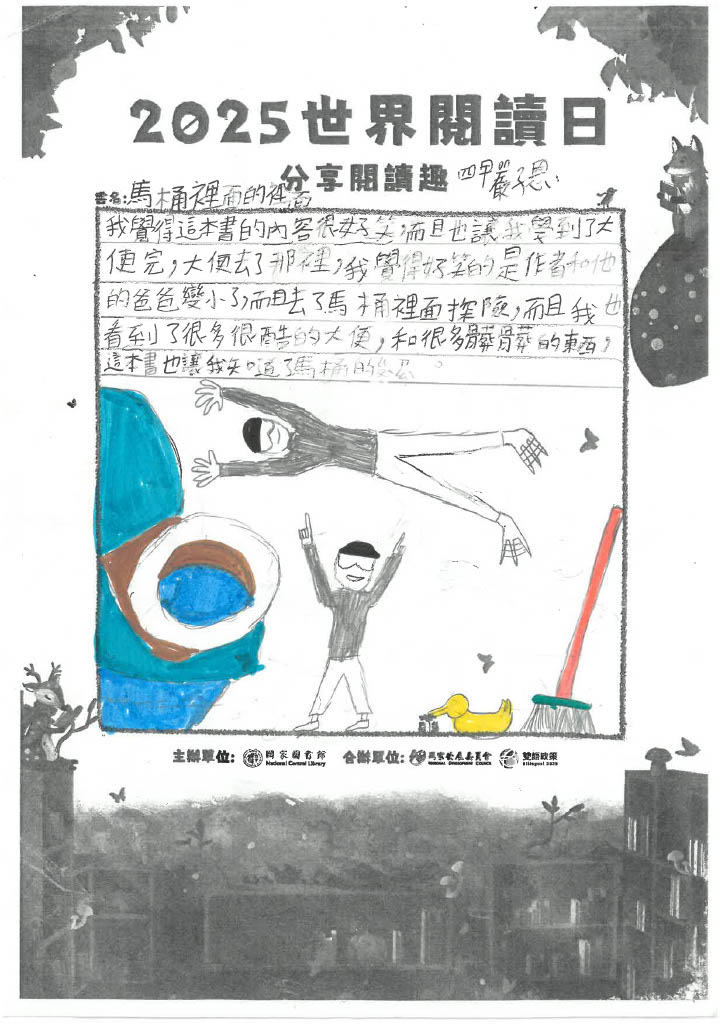 2025世界閱讀日
分享閱讀趣 四甲 嚴子恩
書名:馬桶裡面的裡面
我覺得這本書的內容很好笑,而且也讓我學到了大
便完,大便去了那裡,我覺得好笑的是作者和他
的爸爸變小了,而且去了馬桶裡面探險,而且我也
看到了很多很酷的大便,和很多髒髒的東西,
這本書也讓我知道了馬桶的
主辦單位: 國家圖書館 National Central Library 合辦單位: 國家發展委員會 NATIONAL DEVELOPMENT COUNCIL 雙語政策 Bilingual 2030